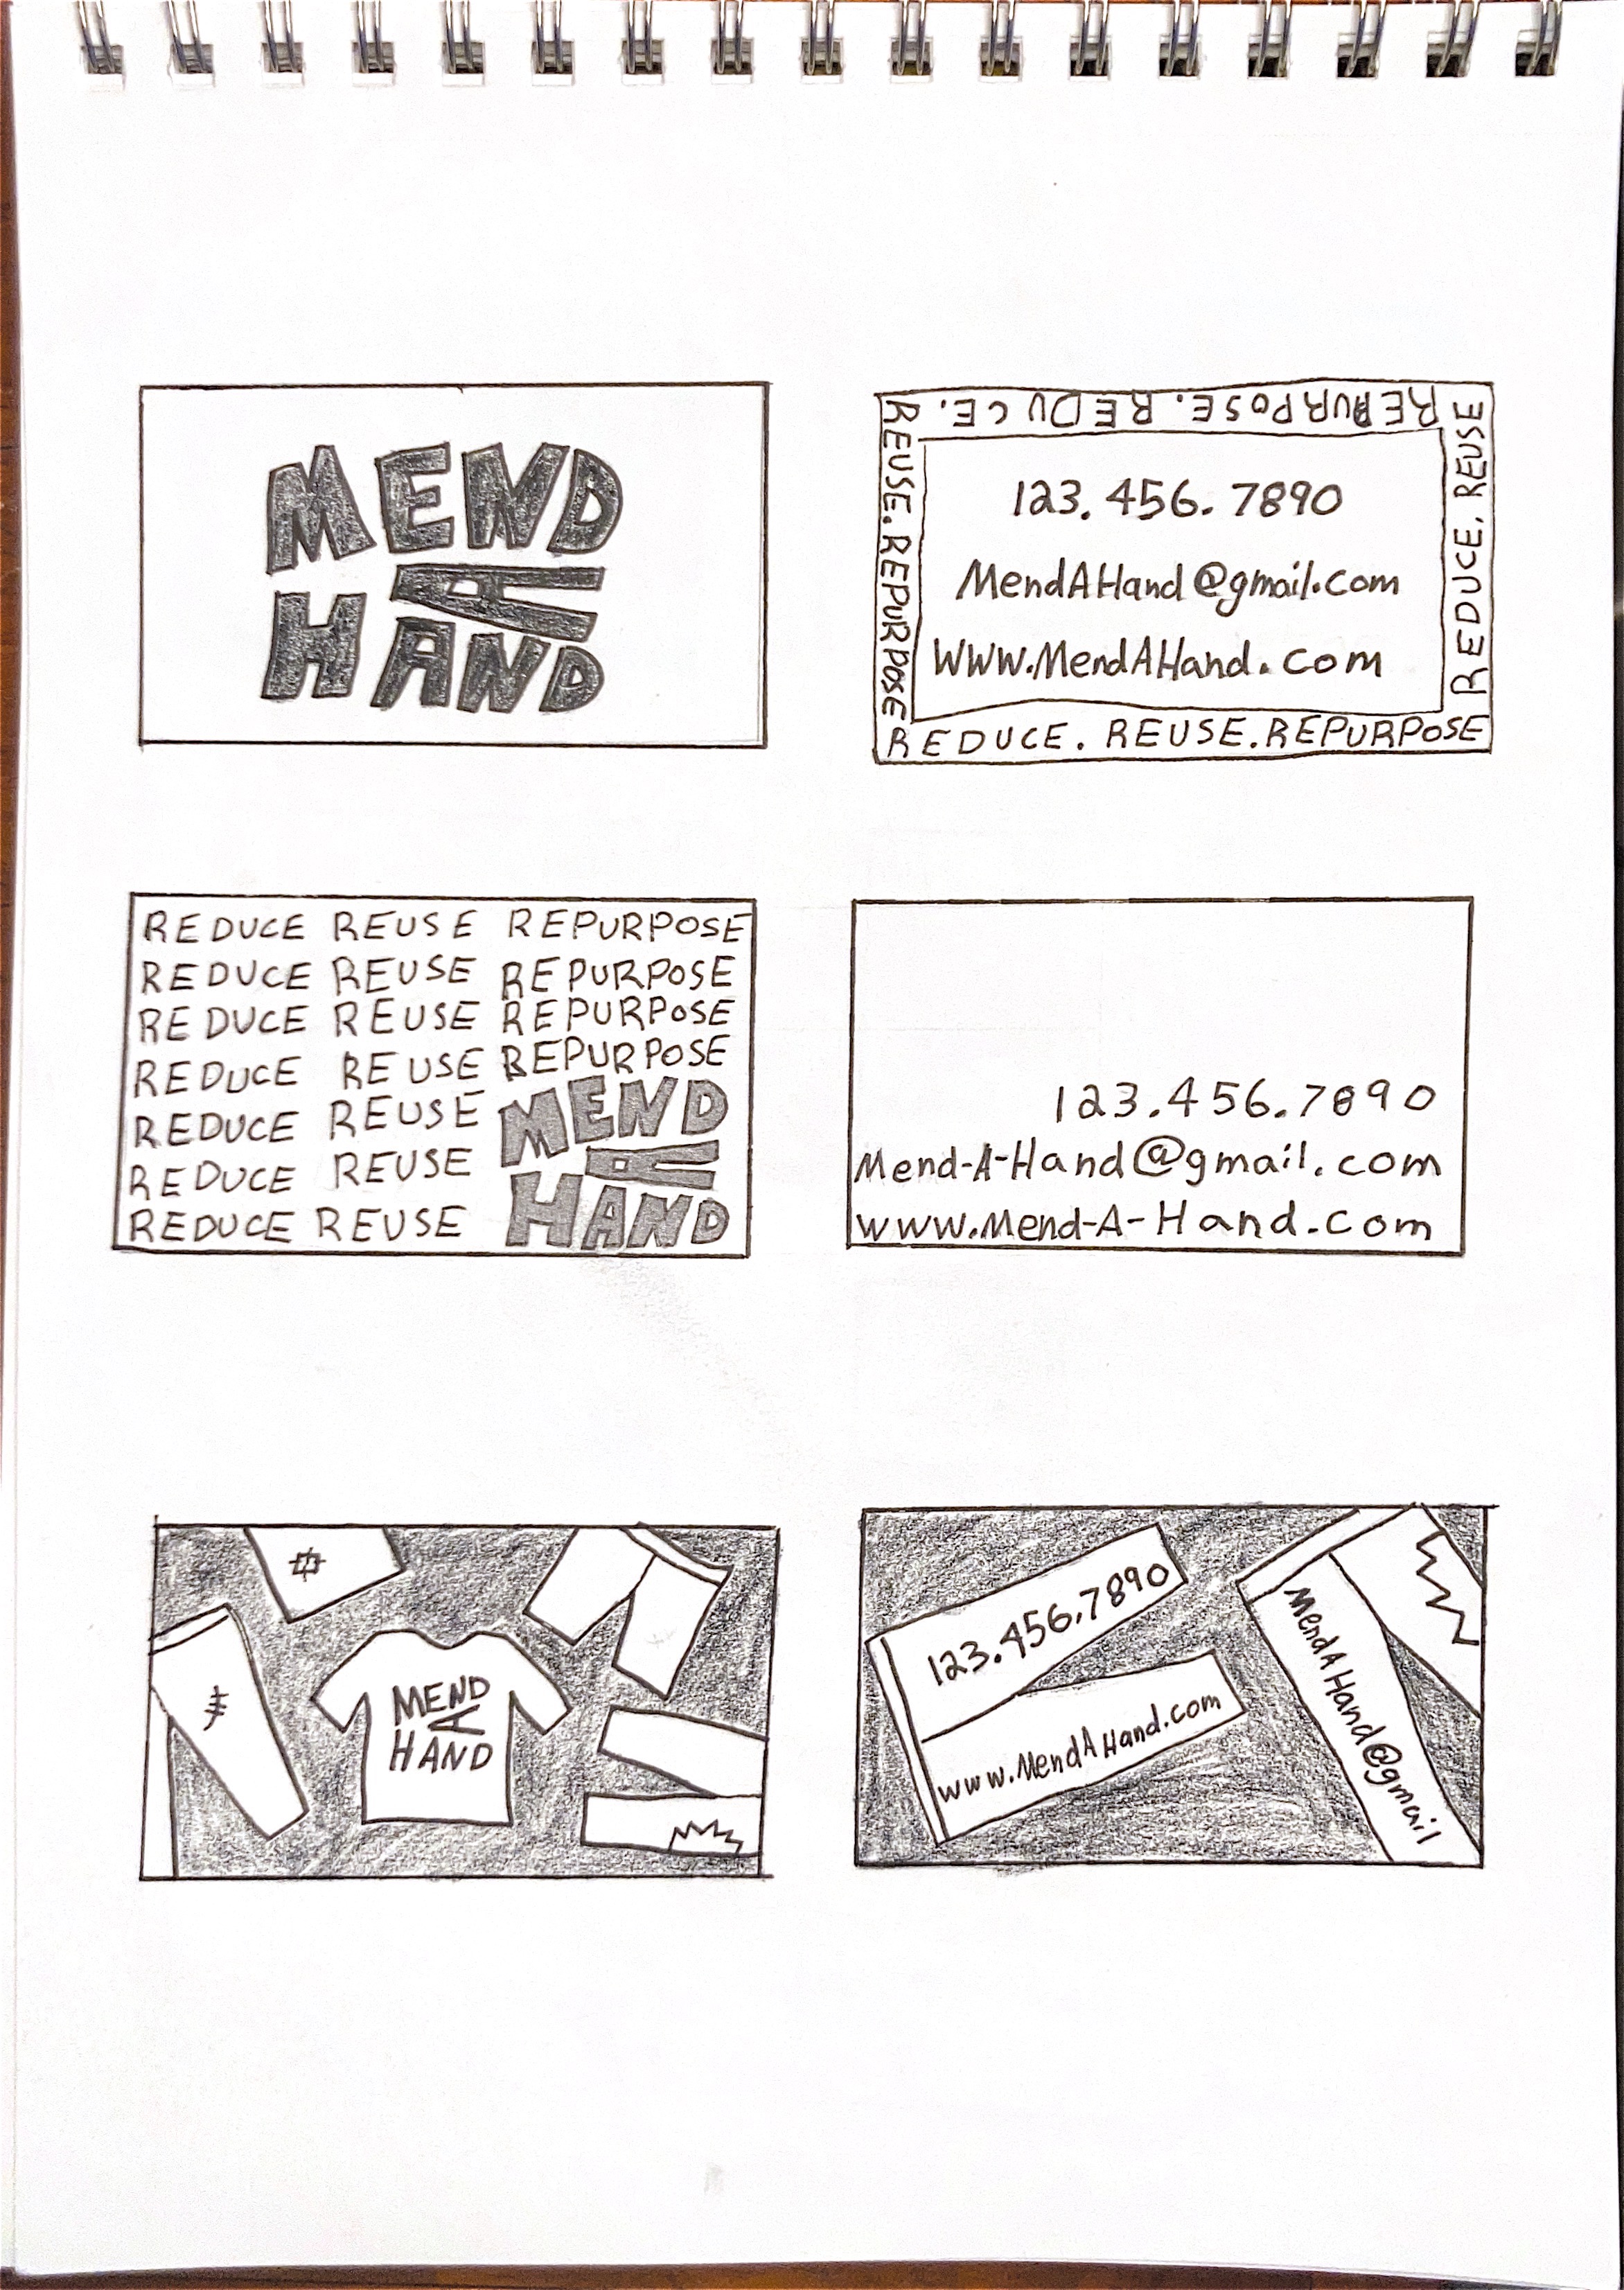 MEND
A
HAND
REPURPOSE. REDUCE.
REUSE. REPURPOSE
REDUCE. REUSE
123. 456. 7890
MendAHand@gmail.com
www.MendAHand.com
REDUCE. REUSE. REPURPOSE
REDUCE REUSE REPURPOSE
REDUCE REUSE REPURPOSE
REDUCE REUSE REPURPOSE
REDUCE REUSE REPURPOSE
REDUCE REUSE
REDUCE REUSE
REDUCE REUSE
MEND
A
HAND
123.456.7890
Mend-A-Hand@gmail.com
www.Mend-A-Hand.com
MEND
A
HAND
123.456.7890
www.MendAHand.com
MendAHand@gmail